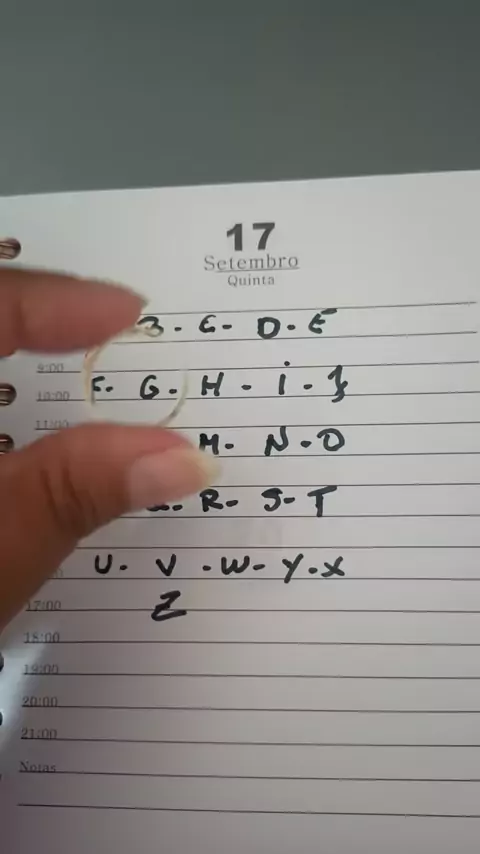 17
Setembro
Quinta
B. C- D. E
9:00
10:00 F. G. H - i - J
11:00
M. N. O
R- S- T
U. V. W- Y. X
17:00 Z
18:00
19:00
20:00
21:00
Notas